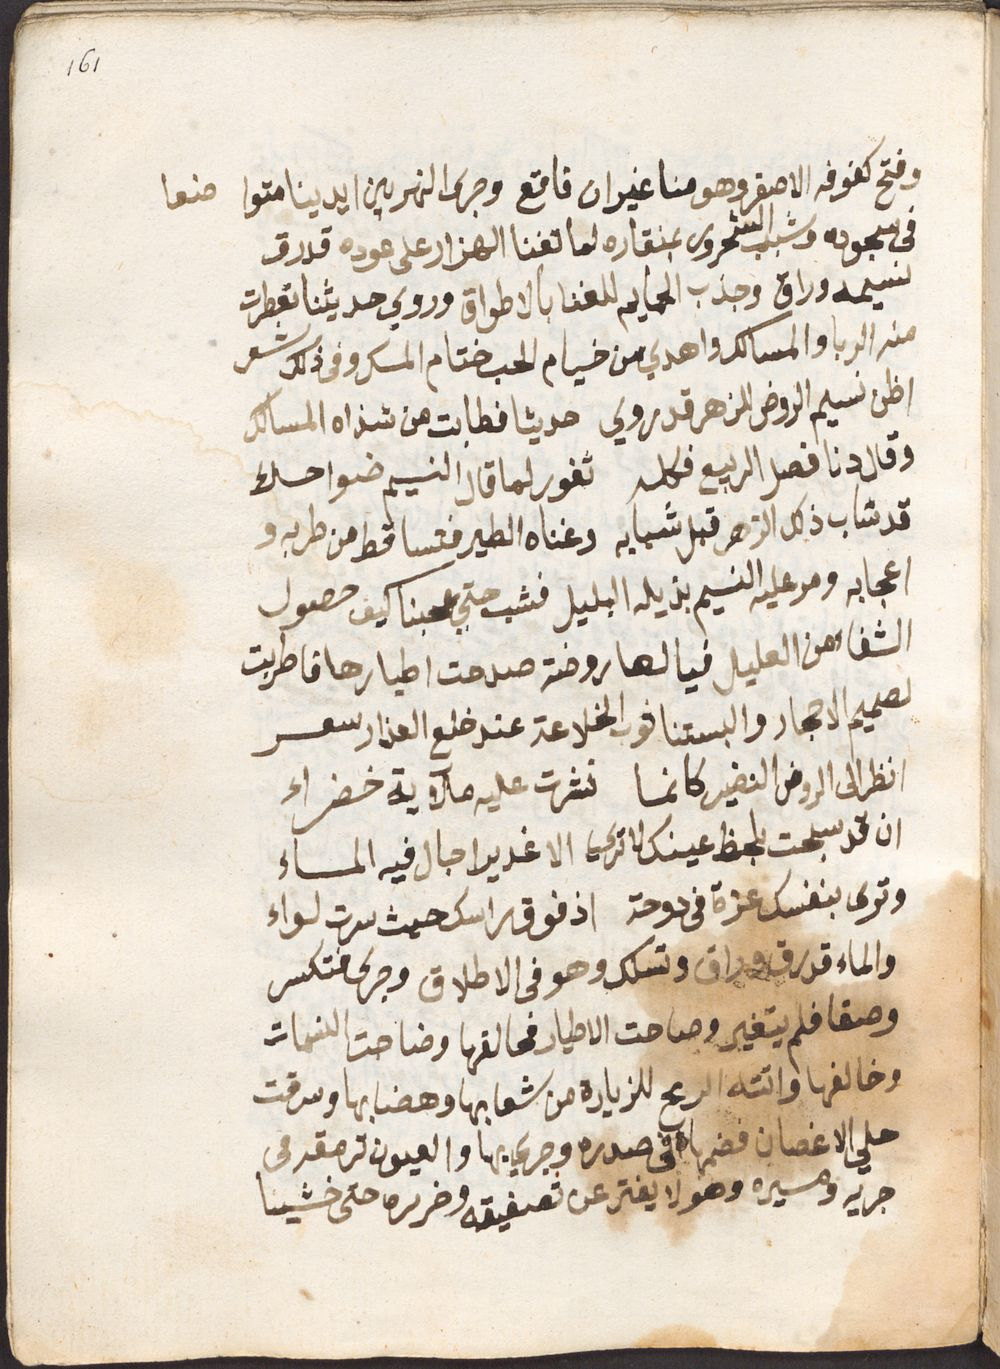 161
وفتح كفوفه الاصفر وهو مناغيران قاقع وجرى النهر بين ايدينا متوا ضعا
فى سجوده وشبب الشحرور بمنقاره لما تغنا الهزار على عوده قد رق
نسيمه وراق وجذب الحمايم للغنا بالاطواق وروي حديثنا تعطرت
منه الربا والمسالك واهدي من خيام الحب ختام المسك وفى ذلك شعر
اظن نسيم الروض الزهر قد روي حديثا فطابت من شذاه المسالك
وقال دنا فصل الربيع فكله ثغور لما قال النسيم ضواحك
قد شاب ذلك الزهر قبل شبابه وغناه الطير فتساقط من طربه و
اعجابه ومر عليه النسيم بذيله البليل فشب حتي عجبنا كيف حصول
الشفا من العليل فيالها روضة صدحت اطيارها فاطربت
لصميم الاحجار والبستنا ثوب الخلاعة عند خلع العذار شعر
انظر الى الروض النضير كانما نشرت عليه ملآوية خضراء
ان قد سبحت بلحظ عينك لا ترى الا غديرا جال فيه الماء
وترى بنفسك عزة فى دوحة اذ فوق راسك حيث سرت لواء
والماء قد رق وراق وتسلك وهو فى الاطلاق وجرى فتكسر
وصفا فلم يتغير وصاحت الاطيار فحالفها وضاحت النسمات
وخالفها واتته الريح للزيارة من شعابها وهضابها وسرقت
حلي الاغصان فضمها فى صدره وجري بها والعيون ترمقه فى
جريه ومسيره وهو لا يفتر عن تصفيقه وخريره حتى خشينا